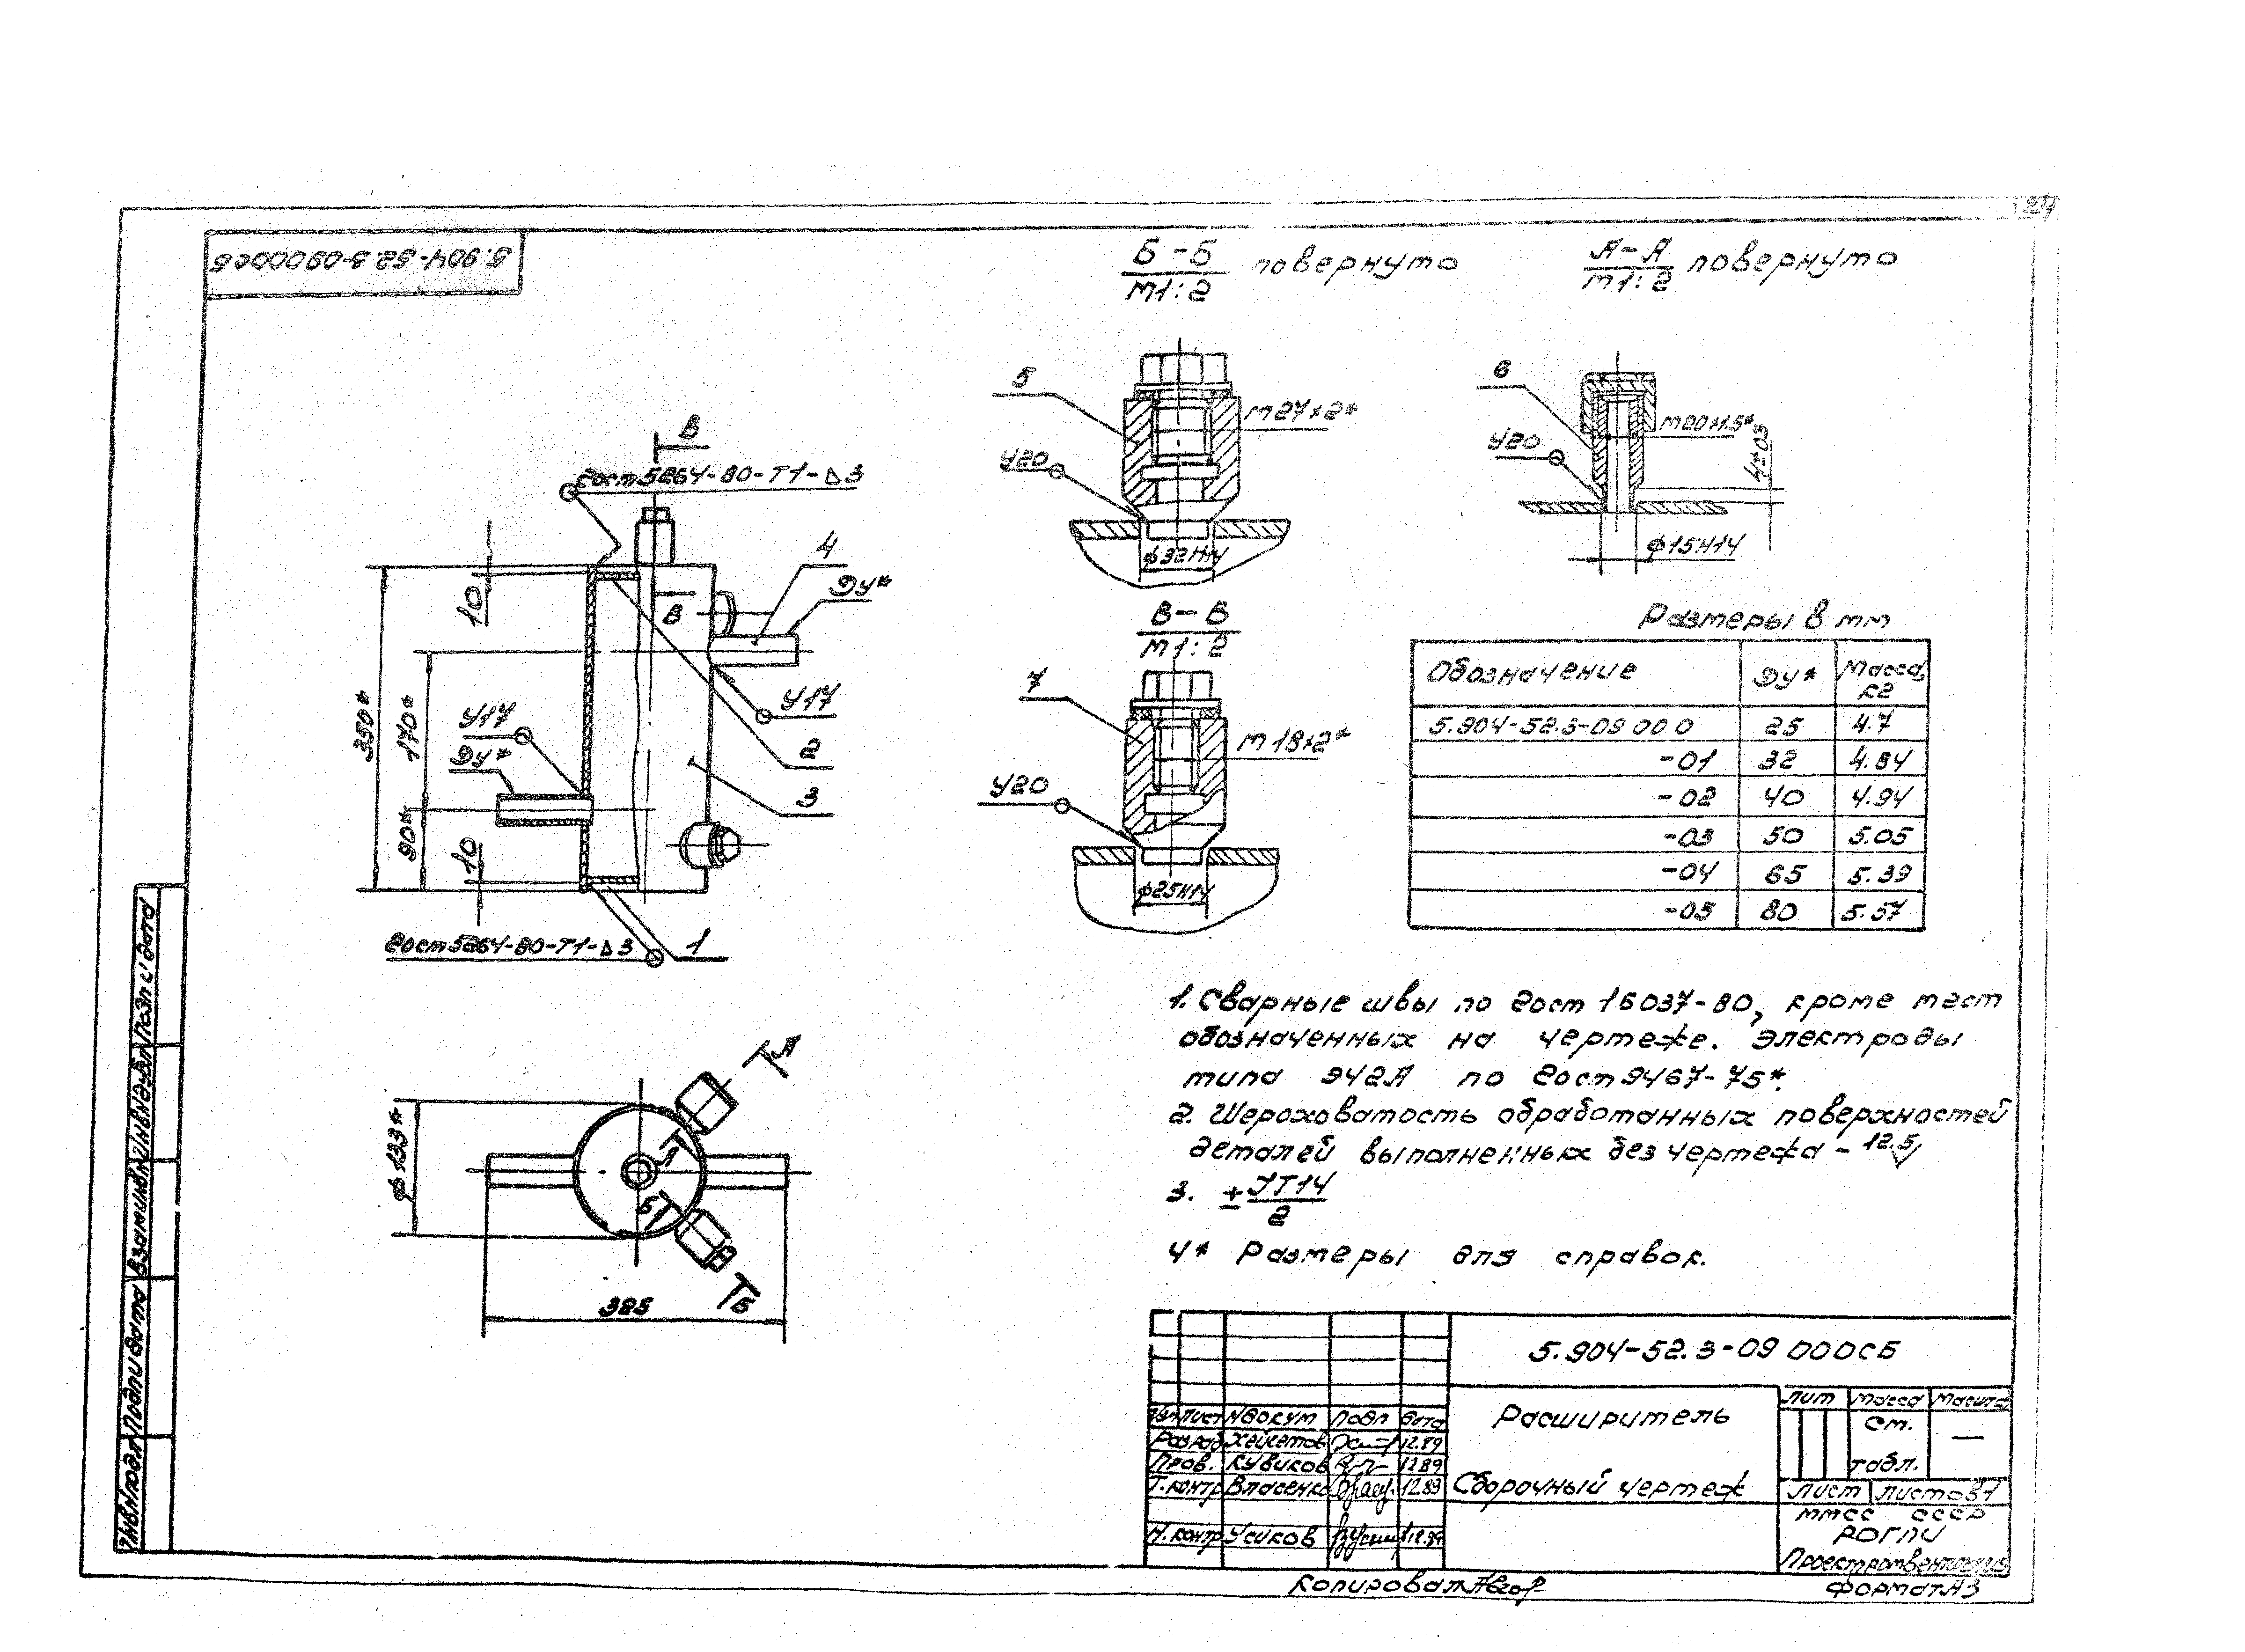 24
5.904-52.3-09000СБ
Б-Б повернуто
М1:2
А-А повернуто
М1:2
5
М27×2*
У20
ф32Н14
6
М20×1.5*
У20
4±0.3
ф15Н14
В
Гост 5264-80-Т1-△3
4
Ду*
10
В
350*
170*
У17
У17
Ду*
2
3
90*
10
Гост 5264-80-Т1-△3
1
В-В
М1:2
7
М18×2*
У20
ф25Н14
Размеры в мм
Обозначение Ду* Масса, кг
5.904-52.3-09 000 25 4.7
-01 32 4.84
-02 40 4.94
-03 50 5.05
-04 65 5.39
-05 80 5.57
А
ф133*
А
Б
Б
325
1. Сварные швы по Гост 16037-80, кроме мест
обозначенных на чертеже. Электроды
типа Э42А по Гост 9467-75*.
2. Шероховатость обработанных поверхностей
деталей выполненных без чертежа - 12.5
3. ± JT14
2
4* Размеры для справок.
5.904-52.3-09 000СБ
Изм Лист №докум Подп Дата
Разраб 12.89
Пров. Кувиков 12.89
Т.контр Власенко 12.89
Н.контр Усиков 12.89
Расширитель
Сборочный чертеж
Лит Масса Масштаб
См.
табл.
—
Лист Листов 1
ММСС СССР
Копировал
Формат А3
Инв№подл Подп и дата Взам инв№ Инв№дубл Подп и дата